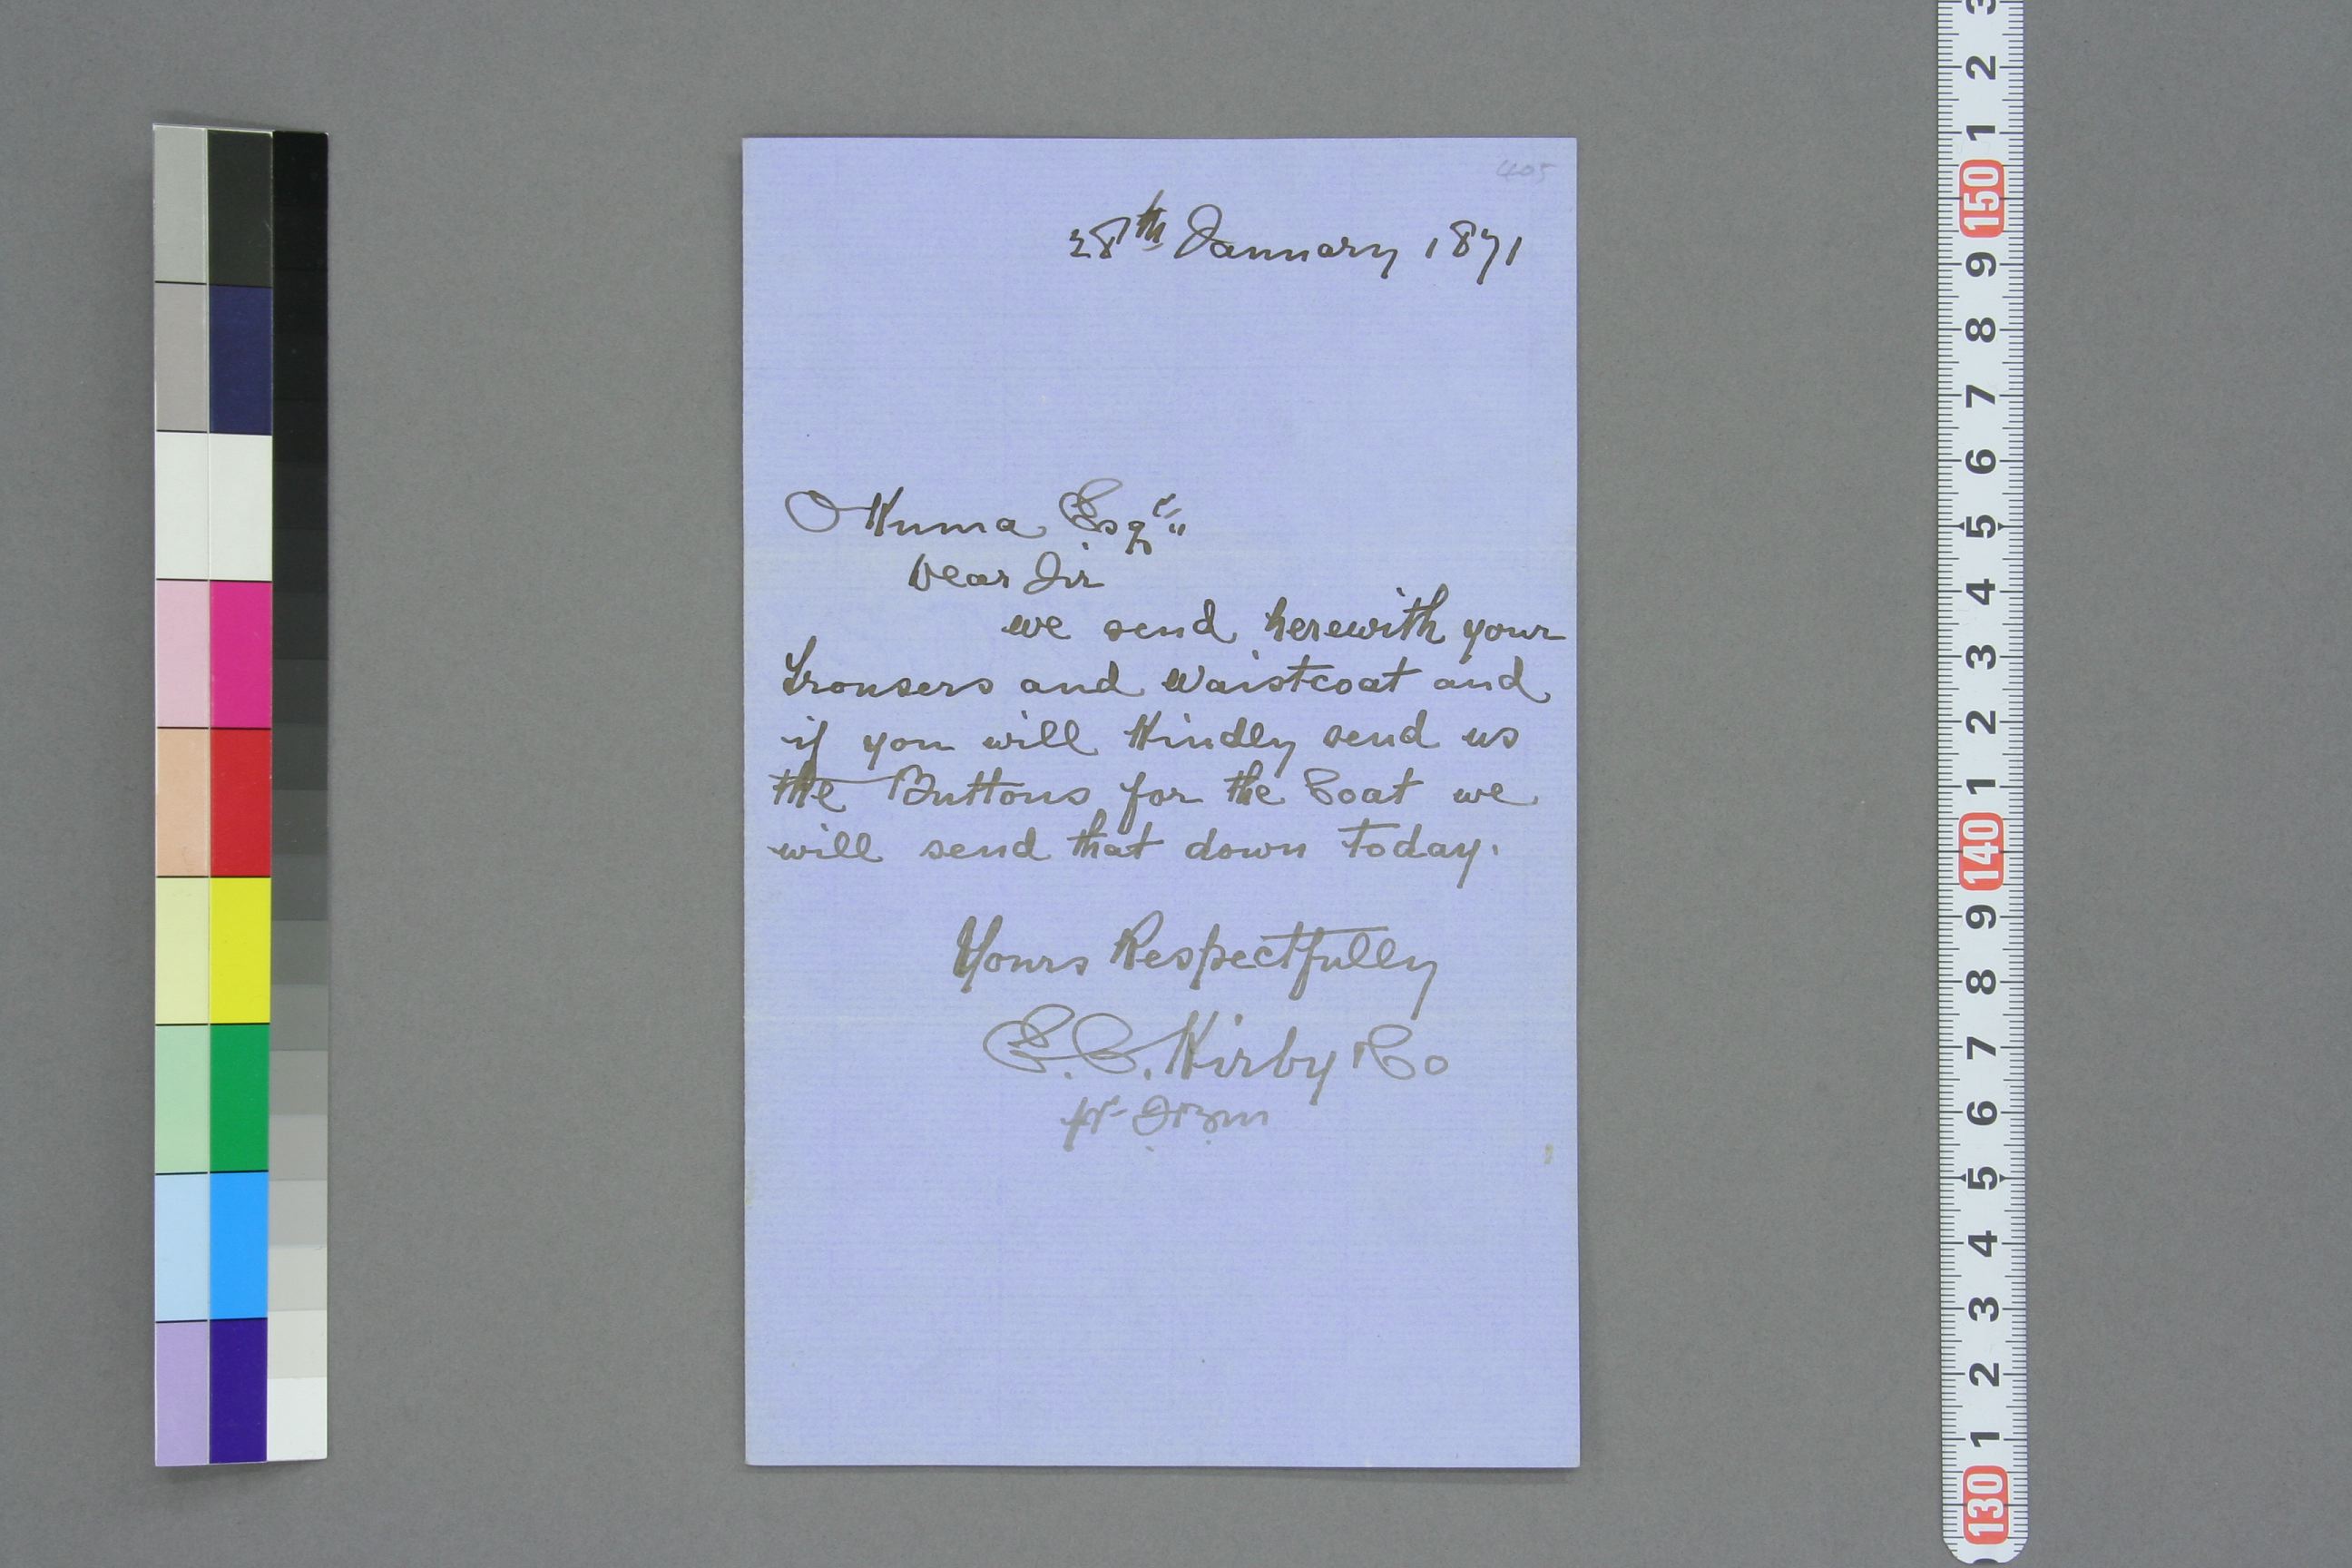 405
28th January 1871
Okuma Esqre
Dear Sir
we send herewith your
Trousers and Waistcoat and
if you will Kindly send us
the Buttons for the Coat we
will send that down today.
Yours Respectfully
E. C. Kirby & Co
3
2
1
150
9
8
7
6
5
4
3
2
1
140
9
8
7
6
5
4
3
2
1
130